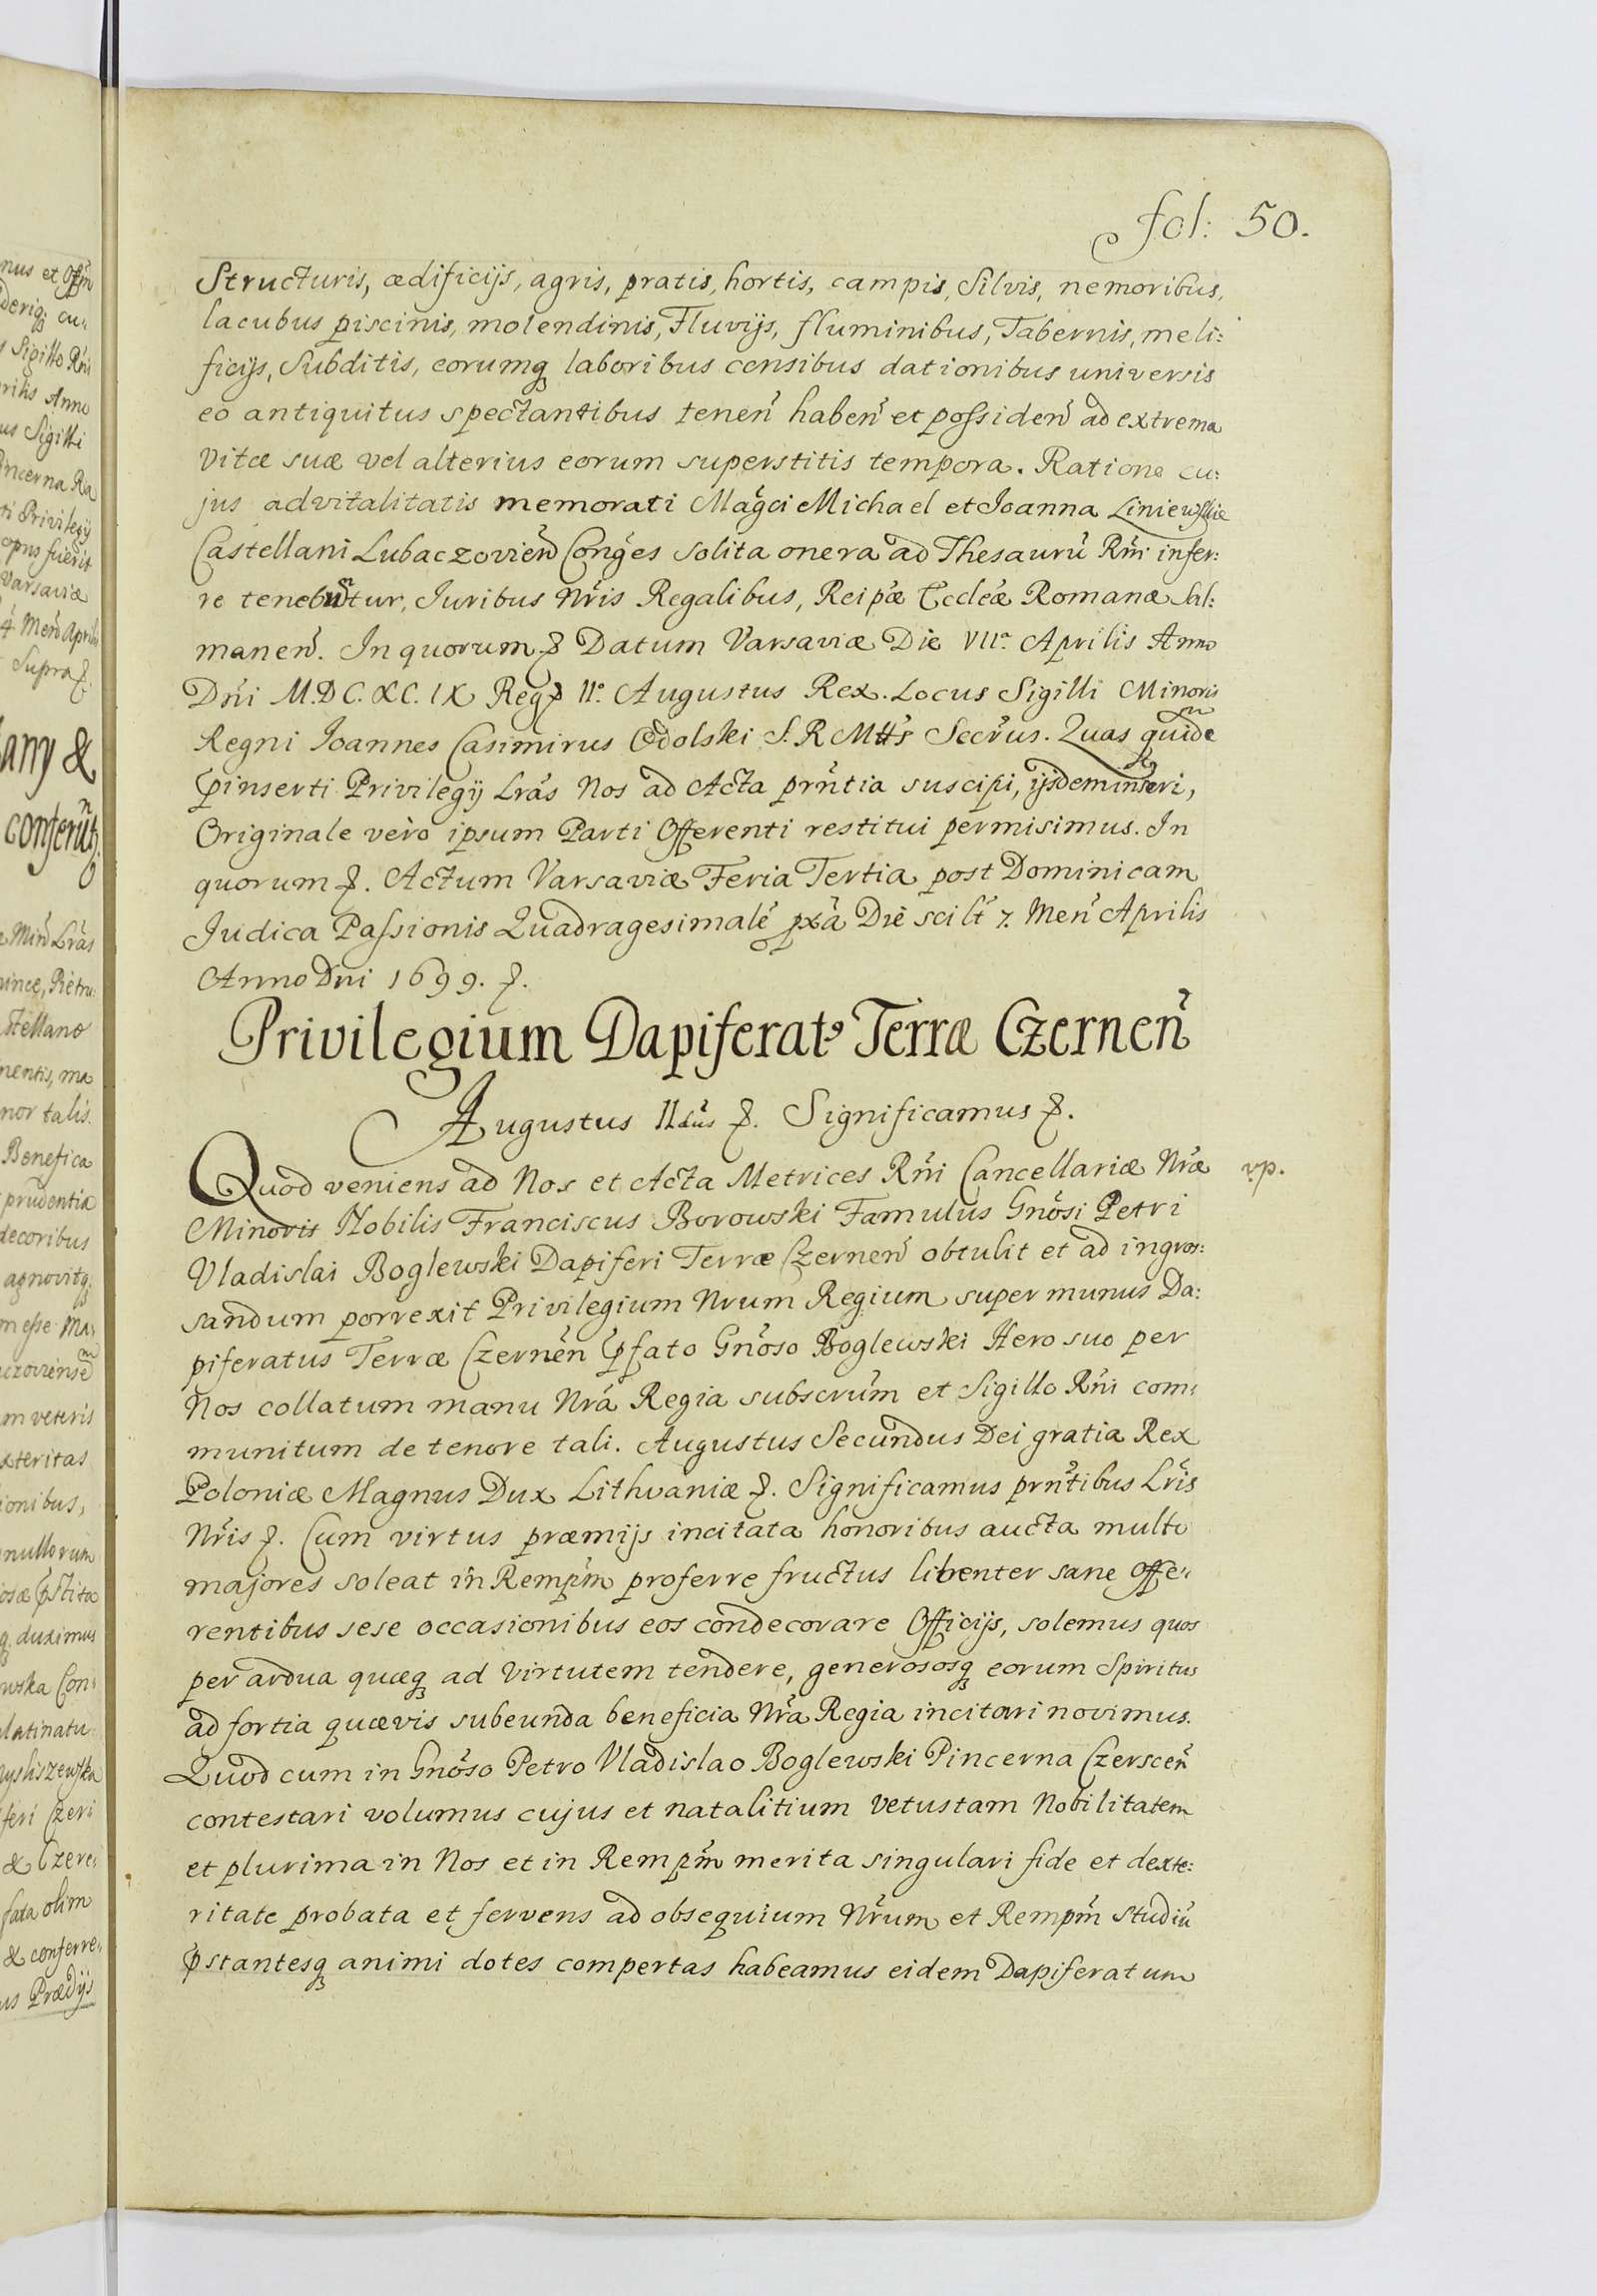 fol: 50.
Structuris, ædificijs, agris, pratis, hortis, campis, Silvis, nemoribus,
lacubus piscinis, molendinis, Fluvijs, fluminibus, Tabernis, meli:
ficijs, Subditis, eorumq laboribus censibus dationibus universis
eo antiquitus spectantibus tenen̄ haben̄ et possiden̄ ad extrema
vitæ suæ vel alterius eorum superstitis tempora. Ratione cu:
jus advitalitatis memorati Mag̃ci Michael et Joanna Liniewskie
Castellani Lubaczovien̄ Con̄ges solita onera ad Thesaurū Rn̄i infer:
re tenebuntur, Juribus Nr̄is Regalibus, Reipæ Eccleæ Romanæ Sal:
manen̄. In quorum Datum Varsaviæ Die VIIa. Aprilis Anno
Dn̄i M.DC.XC.IX Reg II°. Augustus Rex. Locus Sigilli Minoris
Regni Joannes Casimirus S.R.Mttis Secr̄us. Quas quidem
pinserti Privilegij Lr̄as Nos ad Acta prn̄tia suscipi, ijsdem inseri,
Originale vero ipsum Parti Offerenti restitui permisimus. In
quorum. Actum Varsaviæ Feria Tertia post Dominicam
Judica Passionis Quadragesimalē pxā Die scilt̄ 7. Men̄ Aprilis
Anno Dni 1699.
Privilegium Dapiferat9 Terræ Czernen̄
Augustus IIdus. Significamus.
Quod veniens ad Nos et Acta Metrices Rn̄i Cancellariæ Nr̄æ vp.
Minoris Nobilis Franciscus Borowski Famulus Gn̄osi Petri
Vladislai Boglewski Dapiferi Terræ Czernen̄ obtulit et ad ingros:
sandum porrexit Privilegium Nrum Regium super munus Da:
piferatus Terræ Czernen̄ pfato Gn̄oso Boglewski Hero suo per
Nos collatum manu Nr̄a Regia subscrūm et Sigillo Rn̄i com:
munitum de tenore tali. Augustus Secundus Dei gratia Rex
Poloniæ Magnus Dux Lithvaniæ. Significamus prn̄tibus Lr̄is
Nr̄is. Cum virtus præmijs incitata honoribus aucta multo
majores soleat in Rempm̄ proferre fructus libenter sane offe:
rentibus sese occasionibus eos condecorare Officijs, solemus quos
per ardua quæq ad virtutem tendere, generososq eorum Spiritus
ad fortia quævis subeunda beneficia Nr̄a Regia incitari novimus.
Quod cum in Gn̄oso Petro Vladislao Boglewski Pincerna Czerscen̄
contestari volumus cujus et natalitium vetustam Nobilitatem
et plurima in Nos et in Rempm̄ merita singulari fide et dexte:
ritate probata et fervens ad obsequium Nr̄um et Rempm̄ studiū
pstantesq animi dotes compertas habeamus eidem Dapiferatum